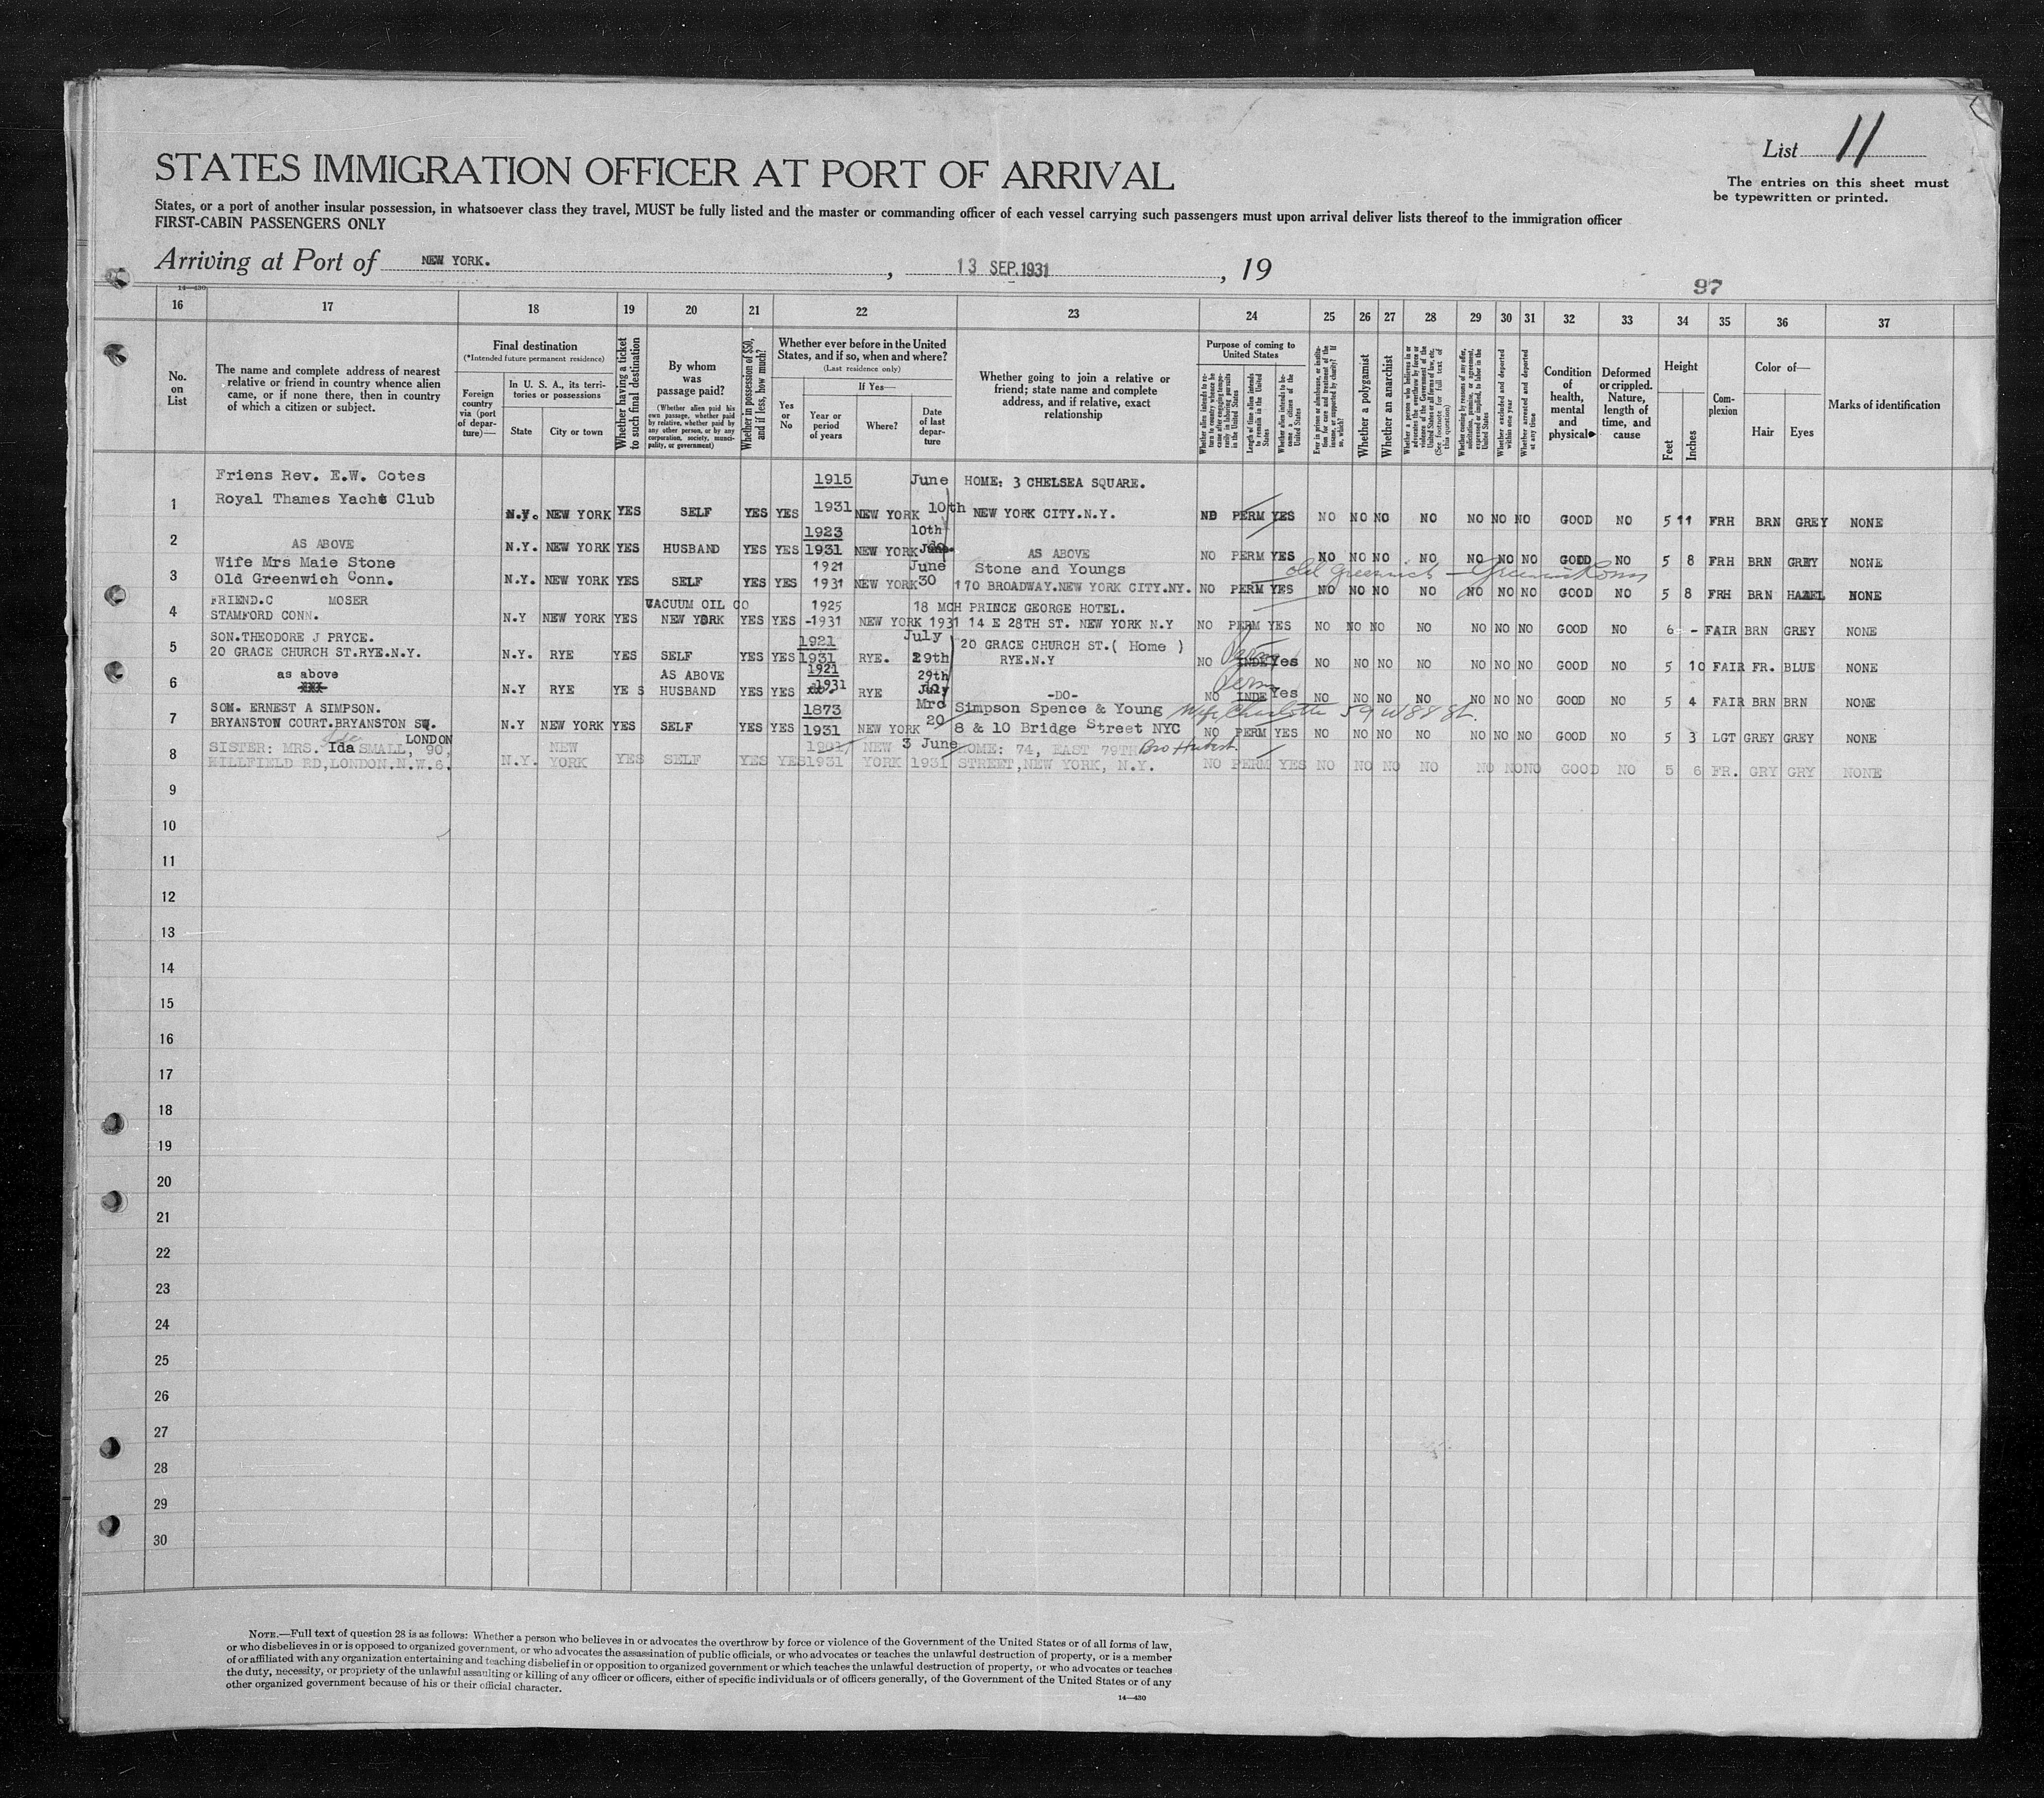 List 11
The entries on this sheet must
be typewritten or printed.
STATES IMMIGRATION OFFICER AT PORT OF ARRIVAL
States, or a port of another insular possession, in whatsoever class they travel, MUST be fully listed and the master or commanding officer of each vessel carrying such passengers must upon arrival deliver lists thereof to the immigration officer
FIRST-CABIN PASSENGERS ONLY
Arriving at Port of NEW YORK. , 13 SEP. 1931 , 19
97
14—430
16 17 18 19 20 21 22 23 24 25 26 27 28 29 30 31 32 33 34 35 36 37
No. on List
The name and complete address of nearest
relative or friend in country whence alien
came, or if none there, then in country
of which a citizen or subject.
Final destination
(*Intended future permanent residence)
Foreign
country
via (port
of depar-
ture)—
In U. S. A., its terri-
tories or possessions
State
City or town
Whether having a ticket
to such final destination
By whom
was
passage paid?
(Whether alien paid his
own passage, whether paid
by relative, whether paid by
any other person, or by any
corporation, society, munici-
pality, or government)
Whether in possession of $50,
and if less, how much?
Whether ever before in the United
States, and if so, when and where?
(Last residence only)
Yes
or
No
If Yes—
Year or
period
of years
Where?
Date
of last
depar-
ture
Whether going to join a relative or
friend; state name and complete
address, and if relative, exact
relationship
Purpose of coming to
United States
Whether alien intends to re-
turn to country whence he
came after engaging tempo-
rarily in laboring pursuits
in the United States
Length of time alien intends
to remain in the United
States
Whether alien intends to be-
come a citizen of the
United States
Ever in prison or almshouse, or institu-
tion for care and treatment of the
insane, or supported by charity? If
so, which?
Whether a polygamist
Whether an anarchist
Whether a person who believes in or
advocates the overthrow by force or
violence of the Government of the
United States or all forms of law, etc.
(See footnote for full text of
this question)
Whether coming by reasons of any offer,
solicitation, promise, or agreement,
expressed or implied, to labor in the
United States
Whether excluded and deported
within one year
Whether arrested and deported
at any time
Condition
of
health,
mental
and
physical
Deformed
or crippled.
Nature,
length of
time, and
cause
Height
Feet
Inches
Com-
plexion
Color of—
Hair
Eyes
Marks of identification
Friens Rev. E.W. Cotes 1915 June HOME: 3 CHELSEA SQUARE.
1 Royal Thames Yacht Club N.Y. NEW YORK YES SELF YES YES 1931 NEW YORK 10th NEW YORK CITY.N.Y. NO PERM YES NO NO NO NO NO NO NO GOOD NO 5 11 FRH BRN GREY NONE
1923 10th
2 AS ABOVE N.Y. NEW YORK YES HUSBAND YES YES 1931 NEW YORK June. AS ABOVE NO PERM YES NO NO NO NO NO NO NO GOOD NO 5 8 FRH BRN GREY NONE
Wife Mrs Maie Stone 1921 June Stone and Youngs Old Greenwich — Greenwich Conn
3 Old Greenwich Conn. N.Y. NEW YORK YES SELF YES YES 1931 NEW YORK 30 170 BROADWAY.NEW YORK CITY.NY. NO PERM YES NO NO NO NO NO NO NO GOOD NO 5 8 FRH BRN HAZEL NONE
FRIEND.C MOSER VACUUM OIL CO 1925 18 MCH PRINCE GEORGE HOTEL.
4 STAMFORD CONN. N.Y NEW YORK YES NEW YORK YES YES -1931 NEW YORK 1931 14 E 28TH ST. NEW YORK N.Y NO PERM YES NO NO NO NO NO NO NO GOOD NO 6 - FAIR BRN GREY NONE
SON.THEODORE J PRYCE. 1921 July 20 GRACE CHURCH ST.( Home ) Perm
5 20 GRACE CHURCH ST.RYE.N.Y. N.Y. RYE YES SELF YES YES 1931 RYE. 29th RYE.N.Y NO INDE Yes NO NO NO NO NO NO NO GOOD NO 5 10 FAIR FR. BLUE NONE
as above AS ABOVE 1921 29th Perm
6 XXX N.Y RYE YE S HUSBAND YES YES 1931 RYE July -DO- NO INDE Yes NO NO NO NO NO NO NO GOOD NO 5 4 FAIR BRN BRN NONE
SOM. ERNEST A SIMPSON. 1873 Mrc Simpson Spence & Young Wife Charlotte 59 W 88 St.
7 BRYANSTON COURT.BRYANSTON SQ. N.Y NEW YORK YES SELF YES YES 1931 NEW YORK 20 8 & 10 Bridge Street NYC NO PERM YES NO NO NO NO NO NO NO GOOD NO 5 3 LGT GREY GREY NONE
LONDON
SISTER: MRS. Ida SMALL, 90, NEW 1901 NEW 3 June HOME: 74, EAST 79TH Bro Hubert.
8 HILLFIELD RD,LONDON.N.W.6. N.Y. YORK YES SELF YES YES 1931 YORK 1931 STREET,NEW YORK, N.Y. NO PERM YES NO NO NO NO NO NO NO GOOD NO 5 6 FR. GRY GRY NONE
9
10
11
12
13
14
15
16
17
18
19
20
21
22
23
24
25
26
27
28
29
30
NOTE.—Full text of question 28 is as follows: Whether a person who believes in or advocates the overthrow by force or violence of the Government of the United States or of all forms of law,
or who disbelieves in or is opposed to organized government, or who advocates the assassination of public officials, or who advocates or teaches the unlawful destruction of property, or is a member
of or affiliated with any organization entertaining and teaching disbelief in or opposition to organized government or which teaches the unlawful destruction of property, or who advocates or teaches
the duty, necessity, or propriety of the unlawful assaulting or killing of any officer or officers, either of specific individuals or of officers generally, of the Government of the United States or of any
other organized government because of his or their official character.
14—430